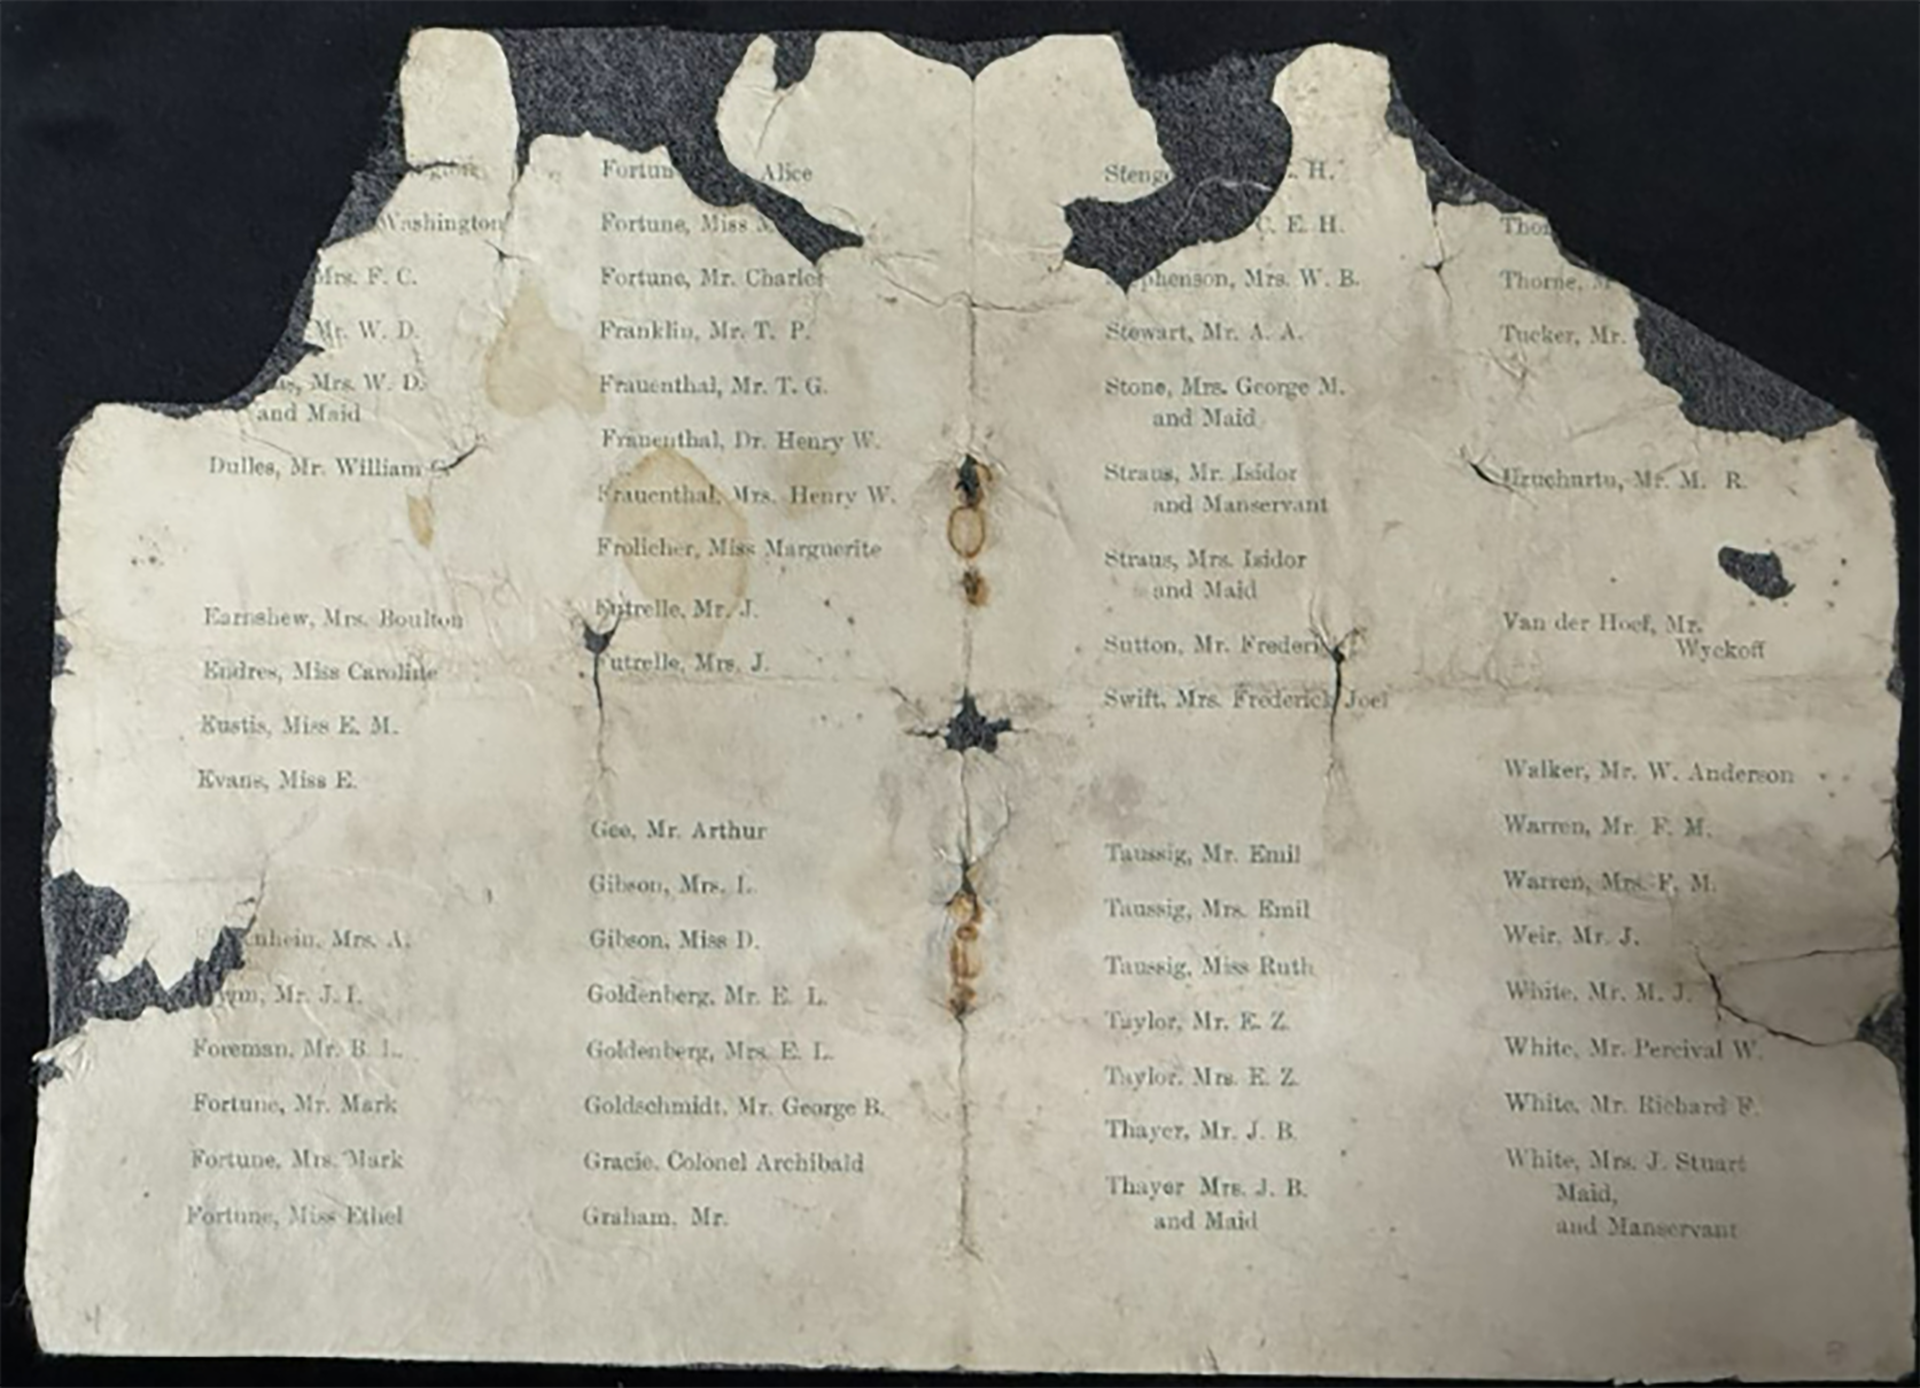 Washington
Mrs. F. C.
Mr. W. D.
Mrs. W. D.
and Maid
Dulles, Mr. William C.
Earnshew, Mrs. Boulton
Endres, Miss Caroline
Eustis, Miss E. M.
Evans, Miss E.
nhein, Mrs. A.
Mr. J. I.
Foreman, Mr. B. L.
Fortune, Mr. Mark
Fortune, Mrs. Mark
Fortune, Miss Ethel
Fortun Alice
Fortune, Miss M
Fortune, Mr. Charles
Franklin, Mr. T. P.
Frauenthal, Mr. T. G.
Frauenthal, Dr. Henry W.
Frauenthal, Mrs. Henry W.
Frolicher, Miss Marguerite
Futrelle, Mr. J.
Futrelle, Mrs. J.
Gee, Mr. Arthur
Gibson, Mrs. L.
Gibson, Miss D.
Goldenberg, Mr. E. L.
Goldenberg, Mrs. E. L.
Goldschmidt, Mr. George B.
Gracie, Colonel Archibald
Graham, Mr.
Stenge H.
C. E. H.
phenson, Mrs. W. B.
Stewart, Mr. A. A.
Stone, Mrs. George M.
and Maid
Straus, Mr. Isidor
and Manservant
Straus, Mrs. Isidor
and Maid
Sutton, Mr. Frederi
Swift, Mrs. Frederick Joel
Taussig, Mr. Emil
Taussig, Mrs. Emil
Taussig, Miss Ruth
Taylor, Mr. E. Z.
Taylor, Mrs. E. Z.
Thayer, Mr. J. B.
Thayer Mrs. J. B.
and Maid
Thor
Thorne, M
Tucker, Mr.
Uruchurtu, Mr. M. R.
Van der Hoef, Mr.
Wyckoff
Walker, Mr. W. Anderson
Warren, Mr. F. M.
Warren, Mrs. F. M.
Weir, Mr. J.
White, Mr. M. J.
White, Mr. Percival W.
White, Mr. Richard F.
White, Mrs. J. Stuart
Maid,
and Manservant